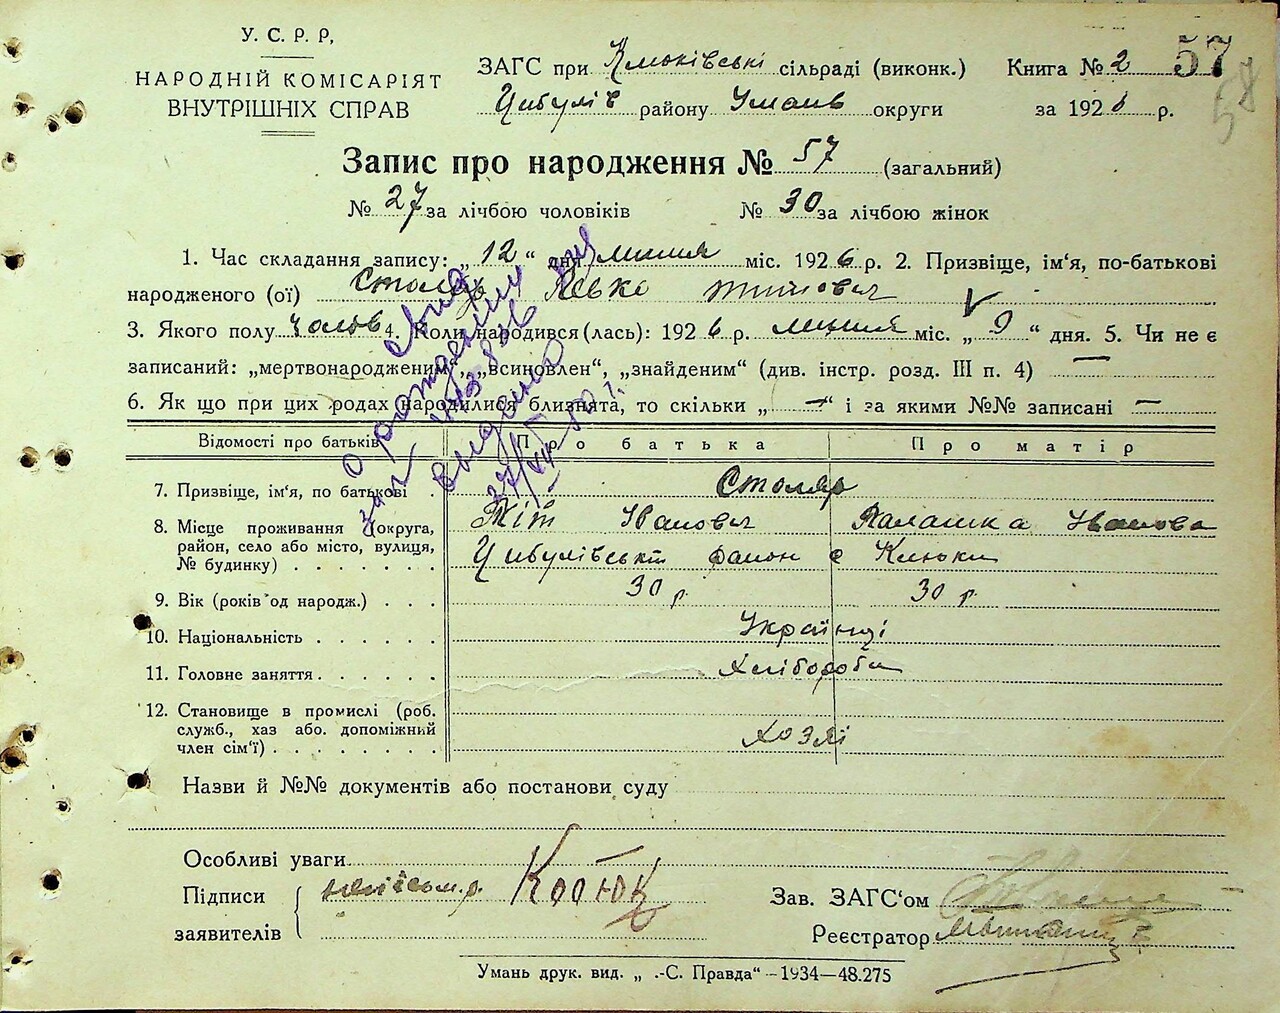 У. С. Р. Р,
НАРОДНІЙ КОМІСАРІЯТ
ВНУТРІШНІХ СПРАВ
ЗАГС при Клюківські сільраді (виконк.) Книга № 2 57
58
Цибулів району Умань округи за 1926 р.
Запис про народження № 57 (загальний)
№ 27 за лічбою чоловіків № 30 за лічбою жінок
1. Час складання запису: „ 12 “ дня липня міс. 1926 р. 2. Призвіще, ім‘я, по-батькові
народженого (ої) Столяр Левко Титович
3. Якого полу чолов 4. Коли народився (лась): 1926 р. липня міс. „ 9 “ дня. 5. Чи не є
записаний: „мертвонародженим“, „всиновлен“, „знайденим“ (див. інстр. розд. III п. 4) —
6. Як що при цих родах народилися близнята, то скільки „ — “ і за якими №№ записані —
Відомості про батьків Про батька Про матір
7. Призвіще, ім‘я, по батькові Столяр
Тіт Іванович Палашка Іванова
8. Місце проживання (округа,
район, село або місто, вулиця,
№ будинку) Цибулівськ район с Клюки
9. Вік (років од народж.) 30 р. 30 р.
10. Національність Українці
11. Головне заняття Хлібороби
12. Становище в промислі (роб.
служб., хаз або. допоміжний
член сім‘ї) хозяї
Назви й №№ документів або постанови суду
Особливі уваги
Підписи
заявителів Котюк
Зав. ЗАГС‘ом
Реєстратор
Умань друк. вид. „ .-С. Правда“ - 1934—48.275
о рождении
выдано